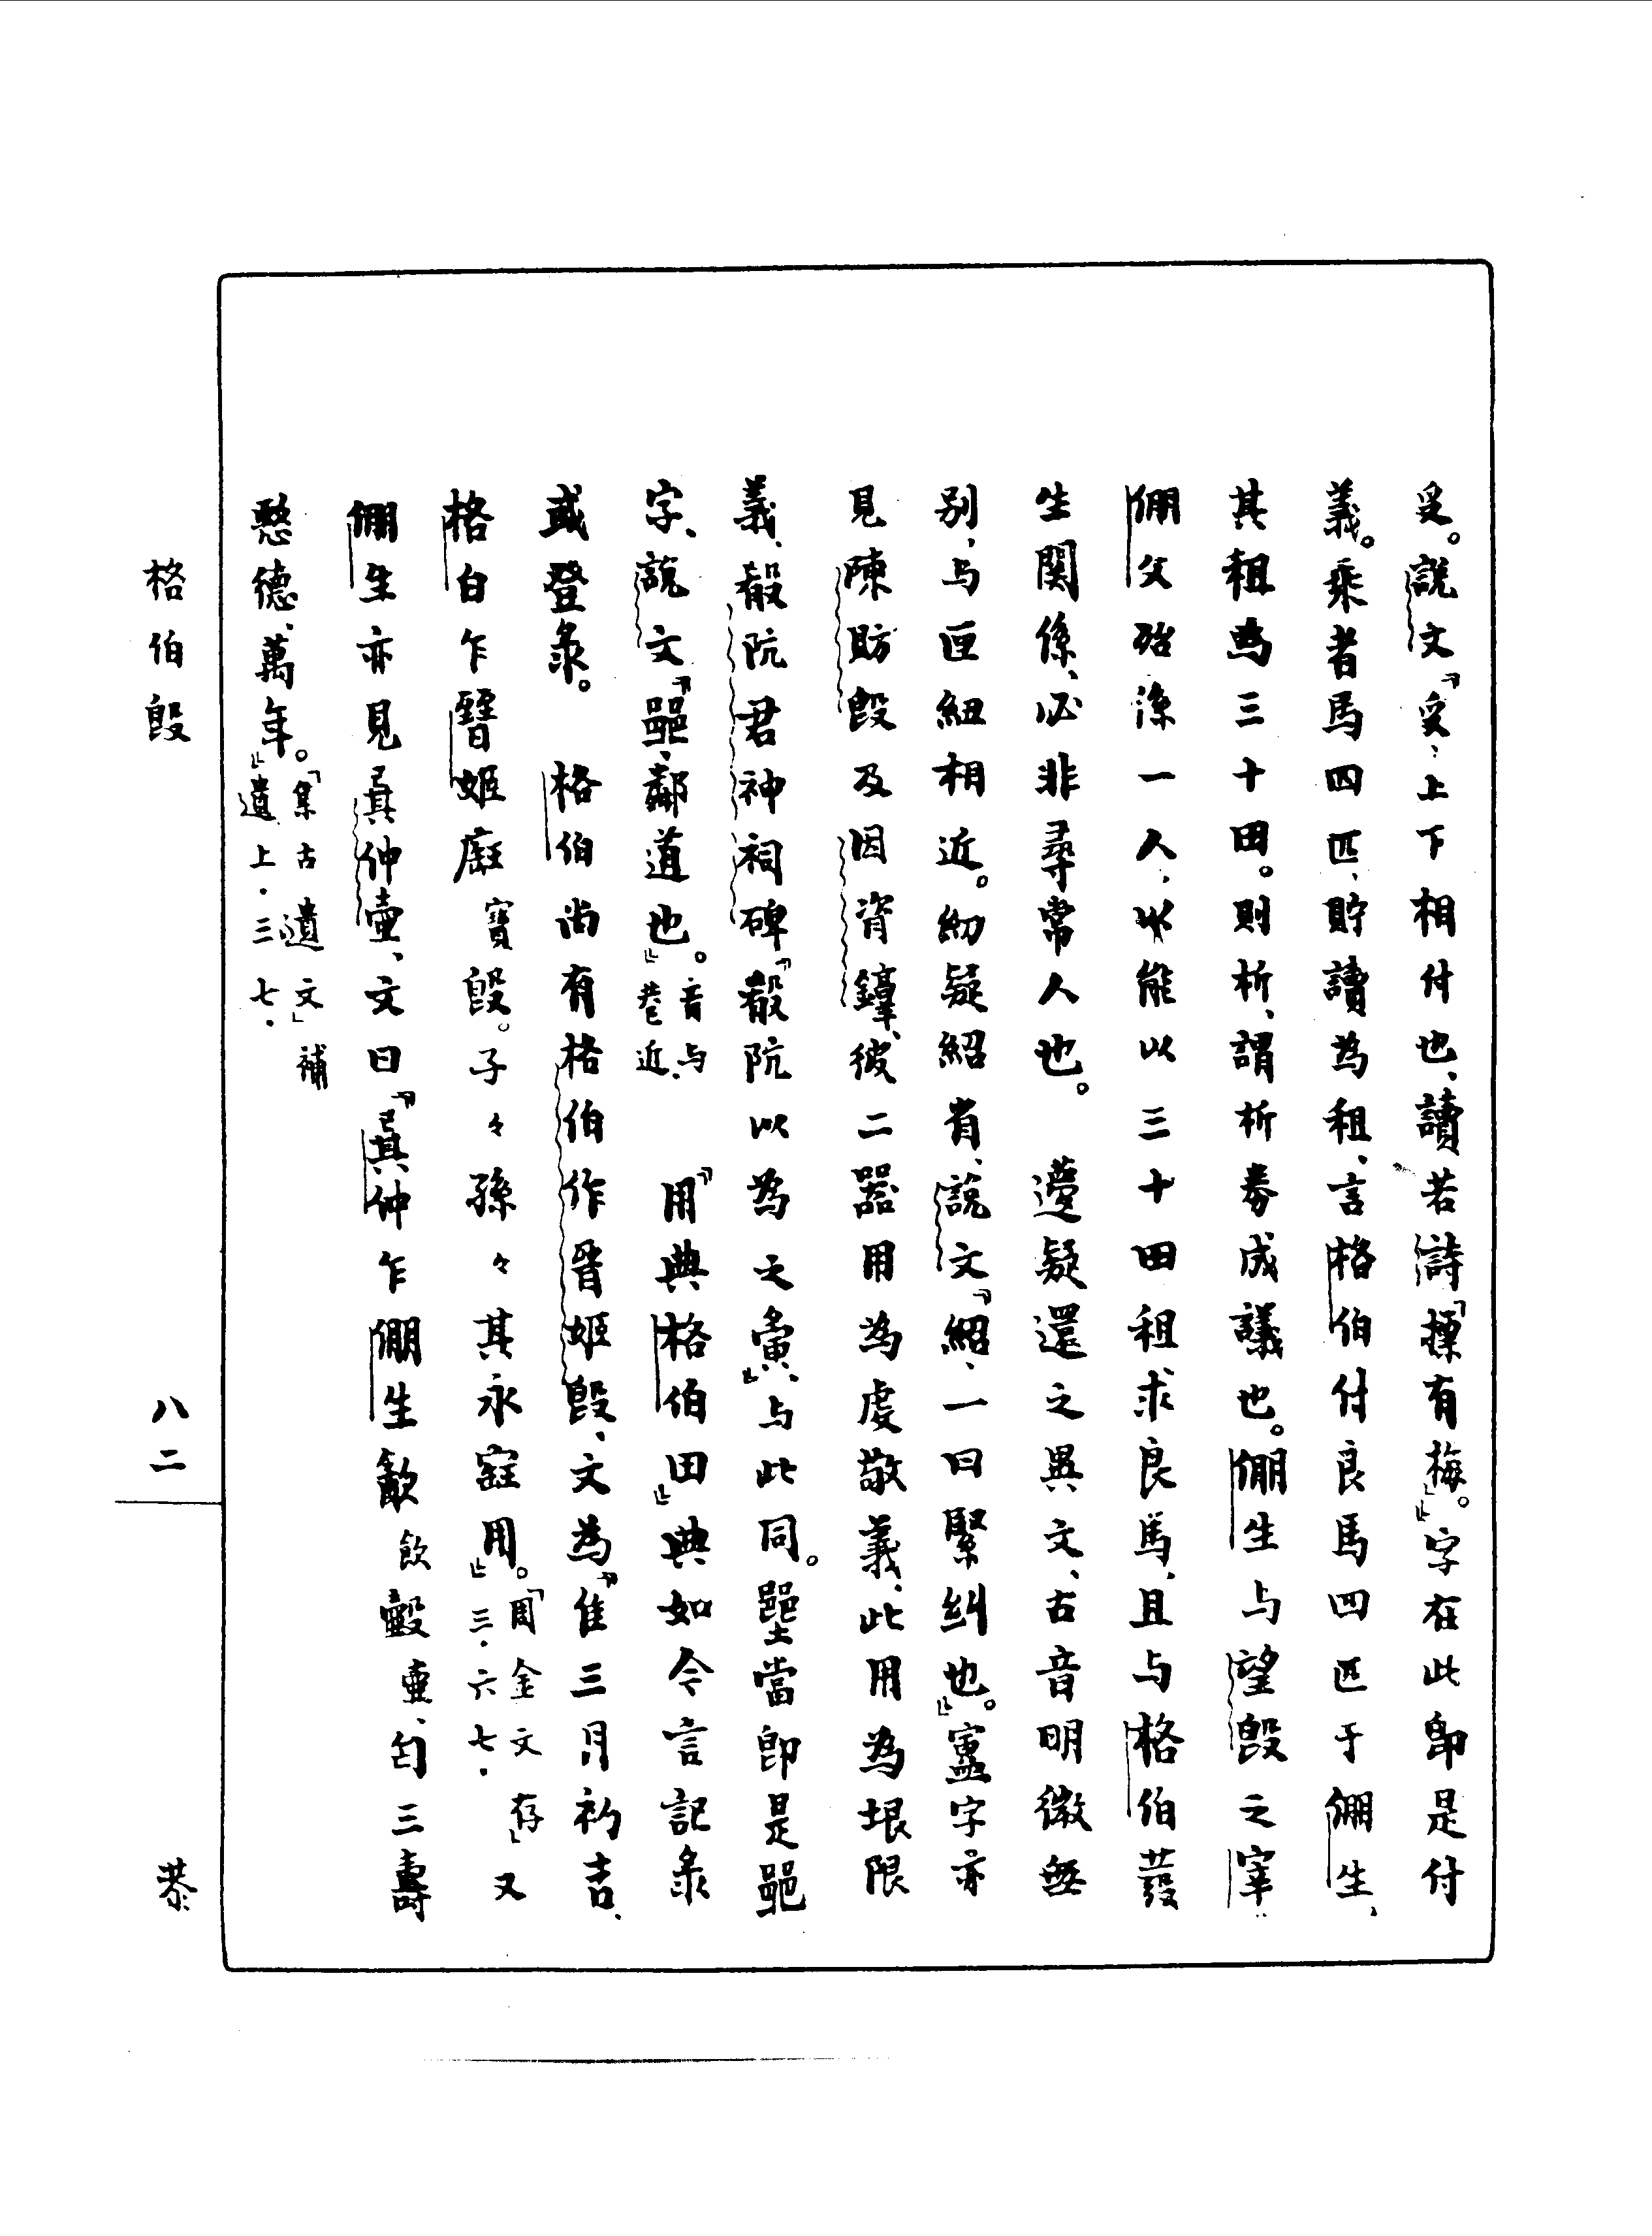 𠬪。說文「𠬪、上下相付也、讀若詩『摽有梅』。」字在此即是付
義。乘者馬四匹、貯讀為租、言格伯付良馬四匹于倗生、
其租為三十田。則析、謂析券成議也。倗生与望𣪘之宰
倗父殆係一人、能以三十田租求良馬、且与格伯發
生関係、必非尋常人也。　　還之異文、古音明微無
別、与匣紐相近。紉疑紹省、說文「紹、一曰緊糾也。」字亦
見陳肪𣪘及因𬃊錞、彼二器用為虔敬義、此用為垠限
義、殽阬君神祠碑「殽阬以為之」、与此同。當即是𨞠
字、說文「𨞠、鄰道也」。音与巷近、　「用典格伯田」典如今言記彔
或登彔。　格伯尚有格伯作晉姬𣪘、文為「隹三月初吉、
格白乍晉姬寶𣪘。子々孫々其永寶用。」「周金文存」三・六七・　又
倗生亦見㠱仲壺、文曰「㠱仲乍倗生歓飲壺、匄三壽
懿德、萬年。」「集古遺文」補遺上・三七・
格伯𣪘
八二